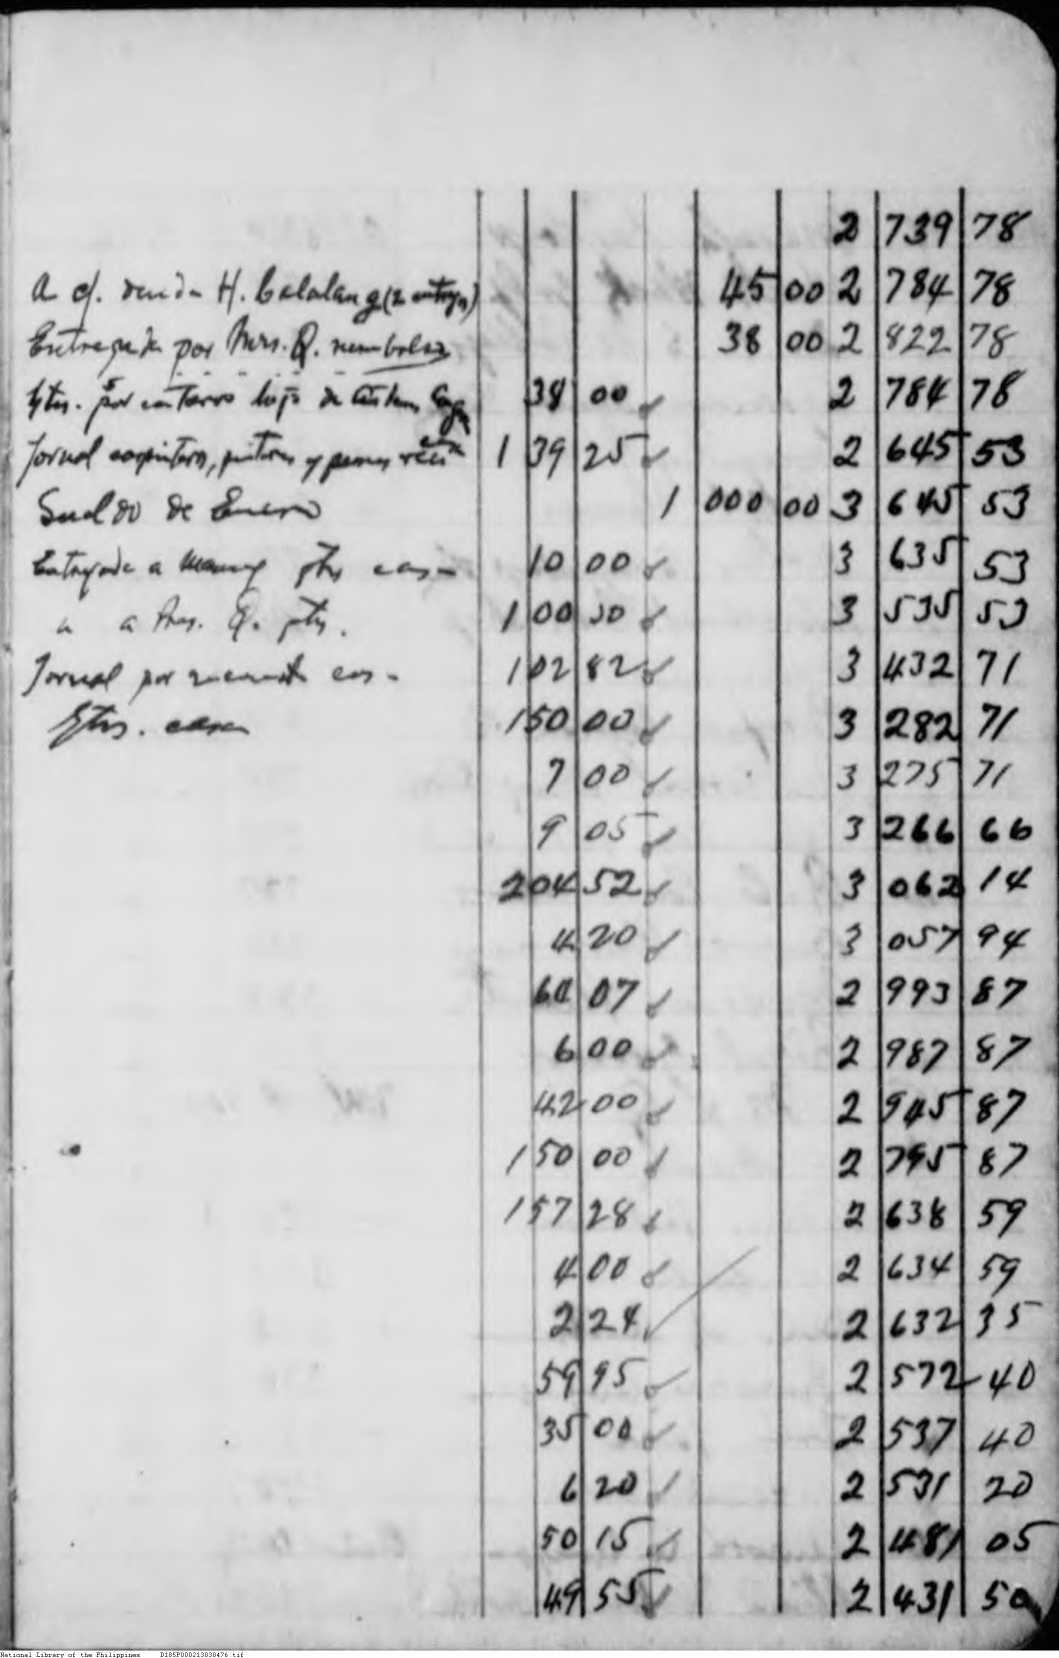 2 739 78
A c/. deuda H. Calalang (2 entregas) 45 00 2 784 78
Entregada por Mrs. Q. reembolso 38 00 2 822 78
Gtos. por entierro hijo de 38 00 2 784 78
Jornal carpintero, pintores y peones 1 39 25 2 645 53
Sueldo de Enero 1 000 00 3 645 53
Entregado a Manuy gtos casa 10 00 3 635 53
" a Mrs. Q. gtos. 1 00 00 3 535 53
Jornal por casa 1 02 82 3 432 71
Gtos. casa 1 50 00 3 282 71
7 00 3 275 71
9 05 3 266 66
2 04 52 3 062 14
4 20 3 057 94
64 07 2 993 87
6 00 2 987 87
42 00 2 945 87
1 50 00 2 795 87
1 57 28 2 638 59
4 00 2 634 59
2 24 2 632 35
59 95 2 572 40
35 00 2 537 40
6 20 2 531 20
50 15 2 481 05
49 55 2 431 50
National Library of the Philippines D185P000213838476.tif